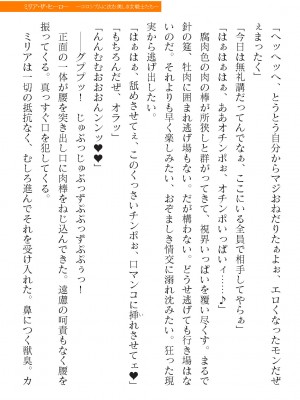 ミリア・ザ・ヒーロー
「ヘッヘッへ、とうとう自分からマジおねだりたぁよぉ、エロくなったモンだぜ
ぇまったく」
「今日は無礼講だってんでなぁ、ここにいる全員で相手してやらぁ」
「はぁはぁはぁ、ああオチンポぉ、オチンポいっぱいィ……♪」
腐肉色の肉の棒が所狭しと群がってきて、視界いっぱいを覆い尽くす。まるで
針の筵、牡肉に囲まれ逃げ場もない。だが構わない。どうせ逃げても行き場はな
いのだ。それよりも早く楽しみたい、おぞましき情交に溺れ沈みたい。狂った現
実から逃げ出したい。
「はぁはぁ、舐めさせてぇ、このくっさいチンポぉ、口マンコに挿れさせてェ♥」
「もちろんだぜ、オラッ」
「んんむむおおおんンンッ♥♥」
――グプププッ！　じゅぷっじゅぷぷずぷぷっずぷぷぅっ！
正面の一体が腰を突き出し口に肉棒をねじ込んできた。遠慮の呵責もなく腰を
振ってくる。真っすぐ口を犯してくる。
ミリアは一切の抵抗なく、むしろ進んでそれを受け入れた。鼻につく獣臭。カ